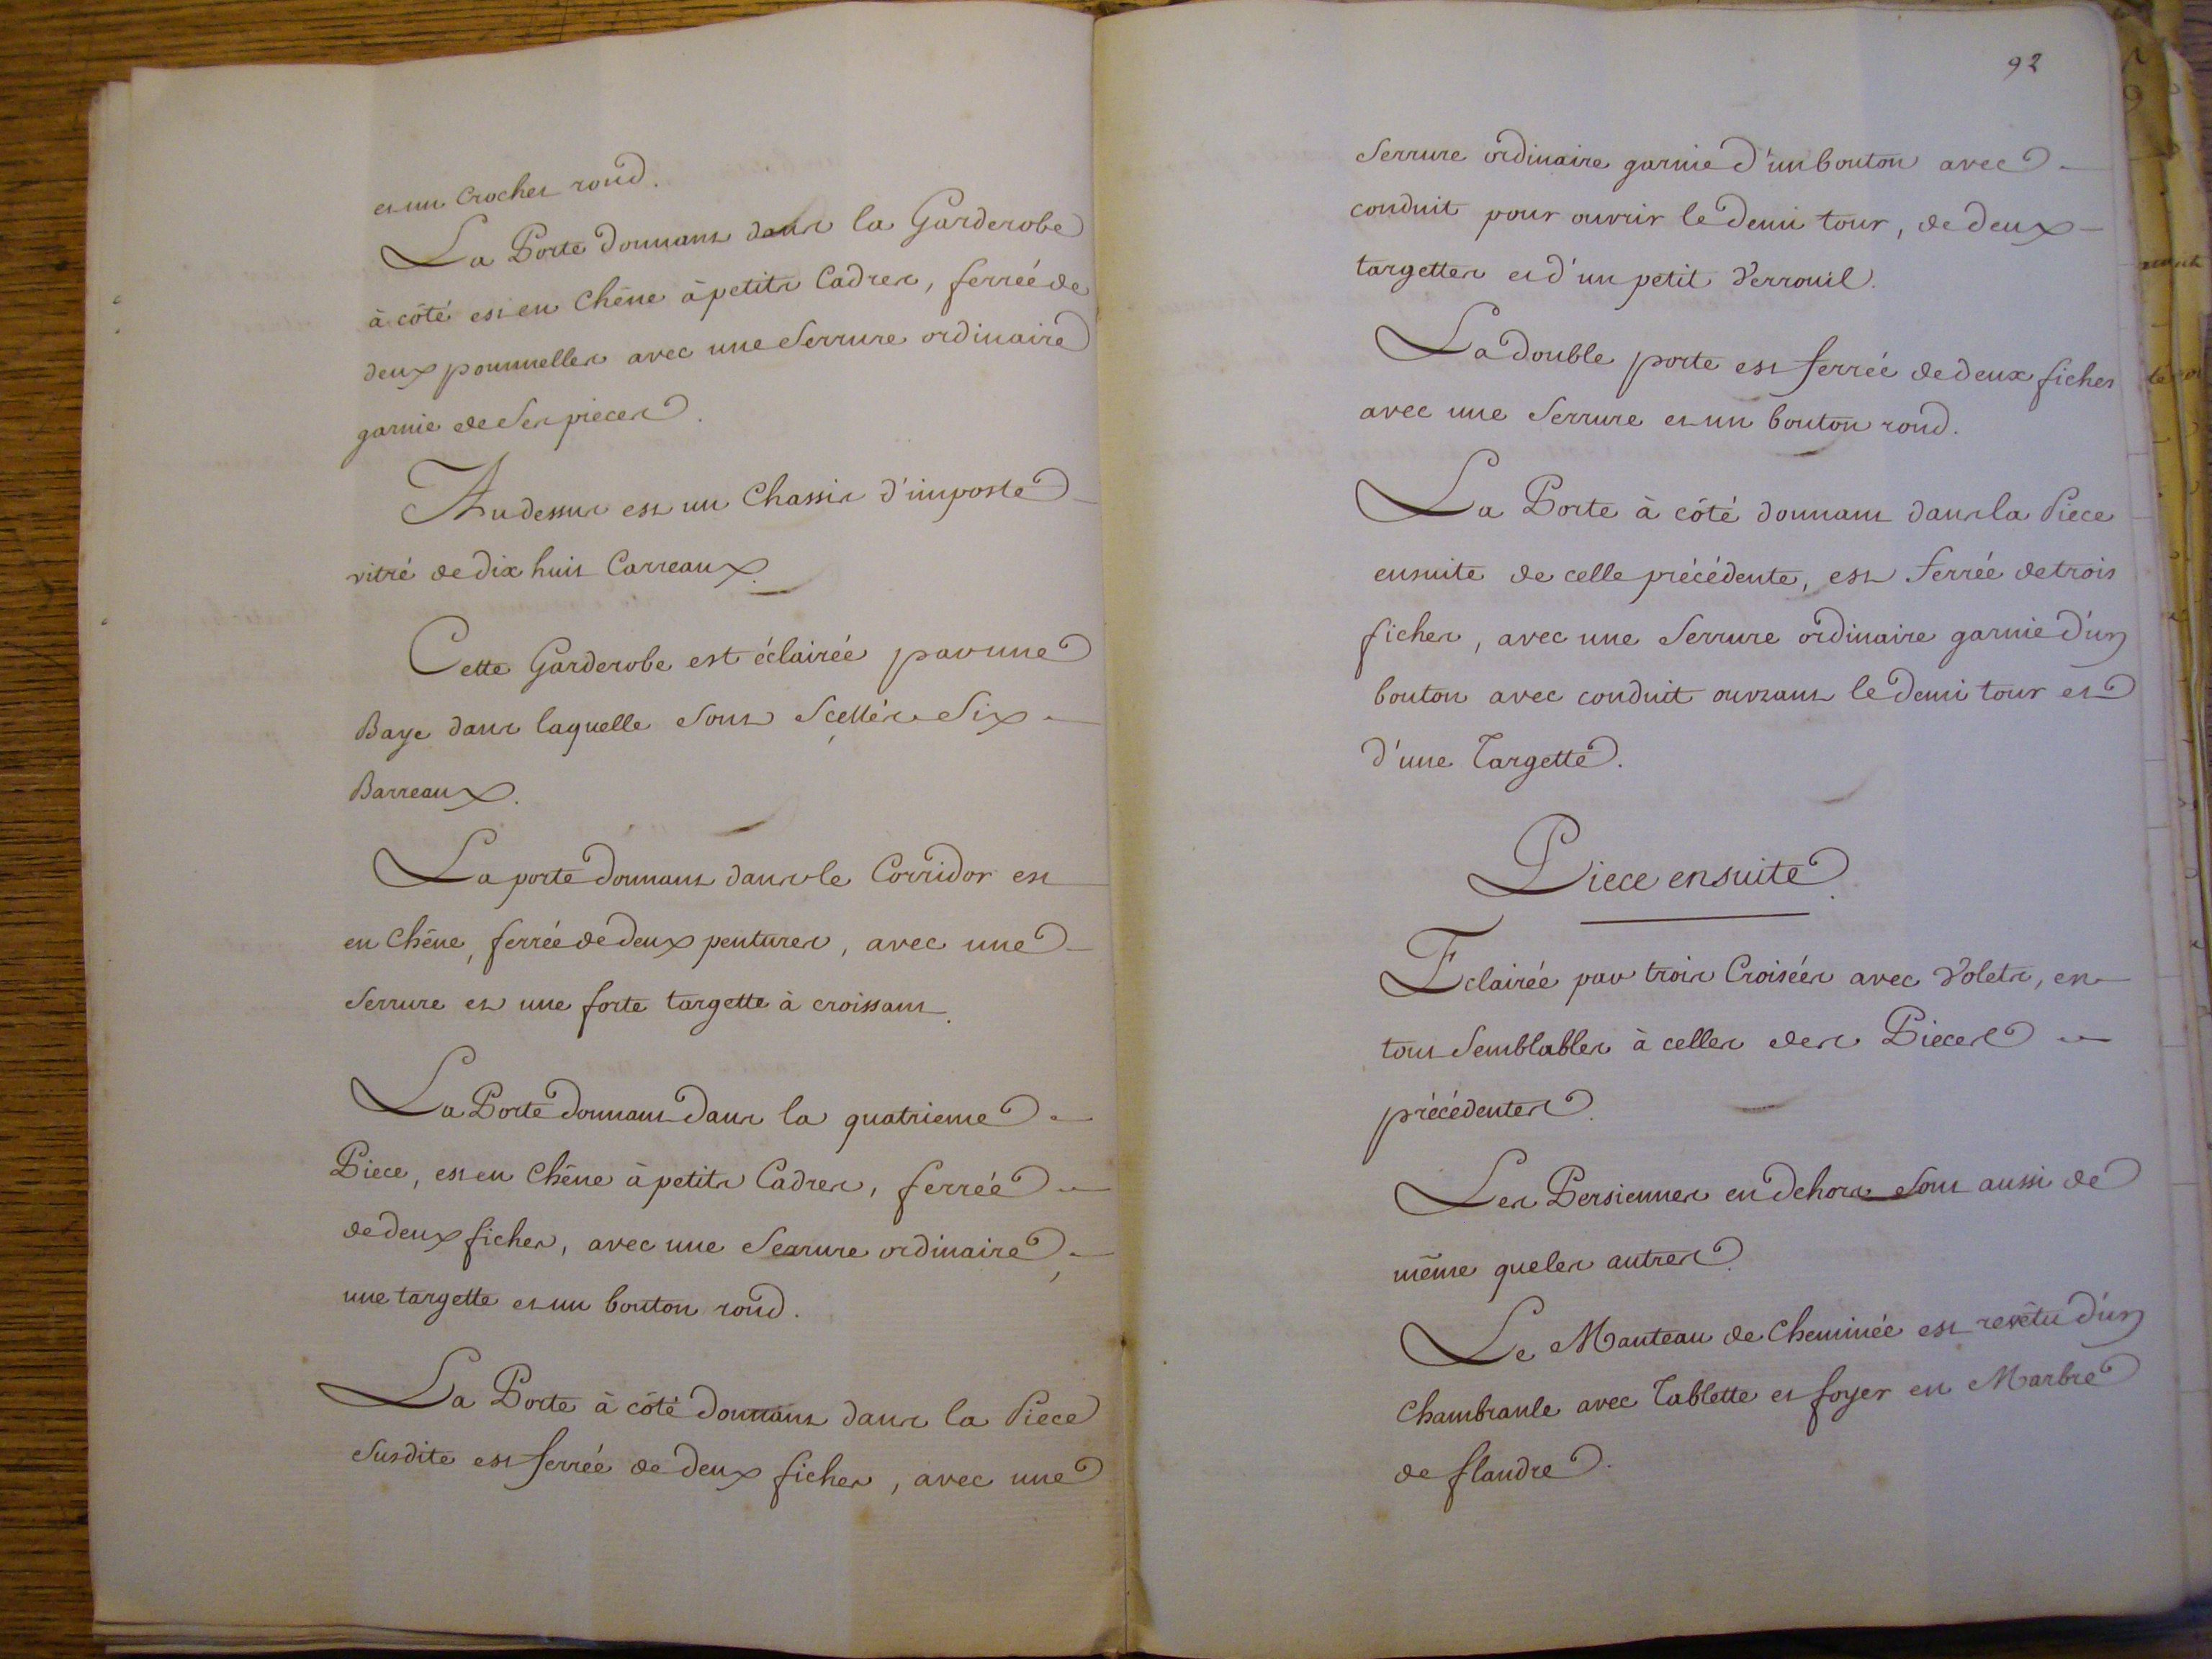 et un Crochet rond.
La Porte donnant dans la Garderobe
à côté est en Chêne à petits Cadres, ferrée de
deux poummelles avec une Serrure ordinaire
garnie de Ses pieces.
Au dessus est un Chassis d'imposte
vitré de dix huit Carreaux.
Cette Garderobe est éclairée par une
Baye dans laquelle Sont Scellés Six
Barreaux.
La porte donnant dans le Corridor est
en Chêne, ferrée de deux pentures, avec une
Serrure et une forte targette à croissant.
La Porte donnant dans la quatrieme
Piece, est en Chêne à petits Cadres, ferrée
de deux fiches, avec une Serrure ordinaire,
une targette et un bouton rond.
La Porte à côté donnant dans la Piece
Susdite est ferrée de deux fiches, avec une
92
Serrure ordinaire garnie d'un bouton avec
conduit pour ouvrir le demi tour, de deux
targettes et d'un petit Verrouil.
La double porte est ferrée de deux fiches
avec une Serrure et un bouton rond.
La Porte à côté donnant dans la Piece
ensuite de celle précédente, est ferrée de trois
fiches, avec une Serrure ordinaire garnie d'un
bouton avec conduit ouvrant le demi tour et
d'une Targette.
Piece ensuite.
Eclairée par trois Croisées avec Volets, en
tout Semblables à celles des Pieces
précédentes.
Les Persiennes en dehors Sont aussi de
même que les autres.
Le Manteau de Cheminée est revêtu d'un
Chambranle avec Tablette et foyer en Marbre
de flandre.